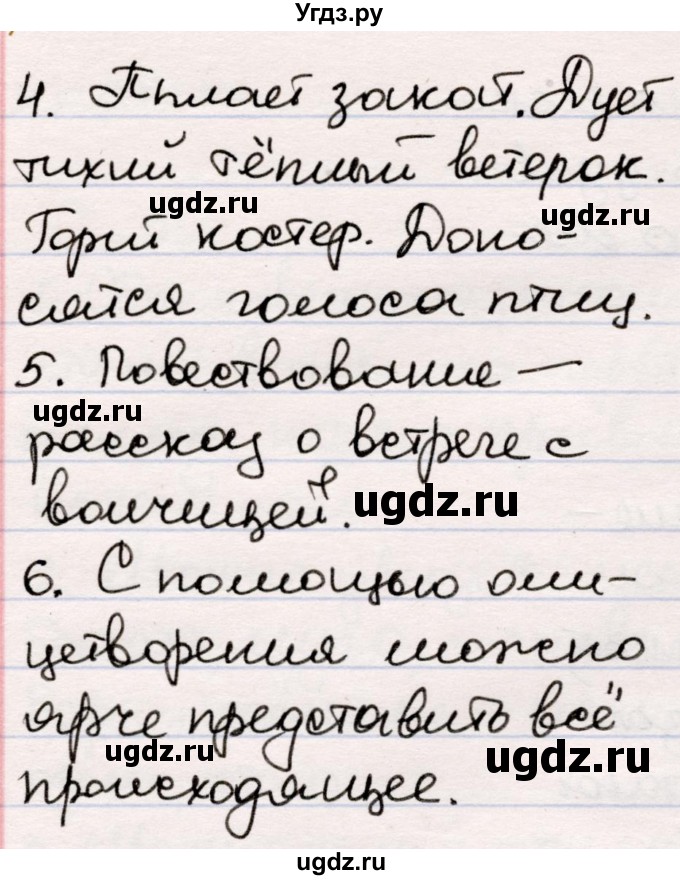 Угдз.ру
4. Пылает закат. Дует
тихий тёплый ветерок.
ugdz.ru
ugdz.ru
Горит костер. Доно-
сятся голоса птиц.
5. Повествование —
ugdz.ru
рассказ о встрече с
ugdz.ru
волчицей.
6. С помощью оли-
цетворения можно
ярче представить всё
ugdz.ru
ugdz.ru
происходящее.
ugdz.ru